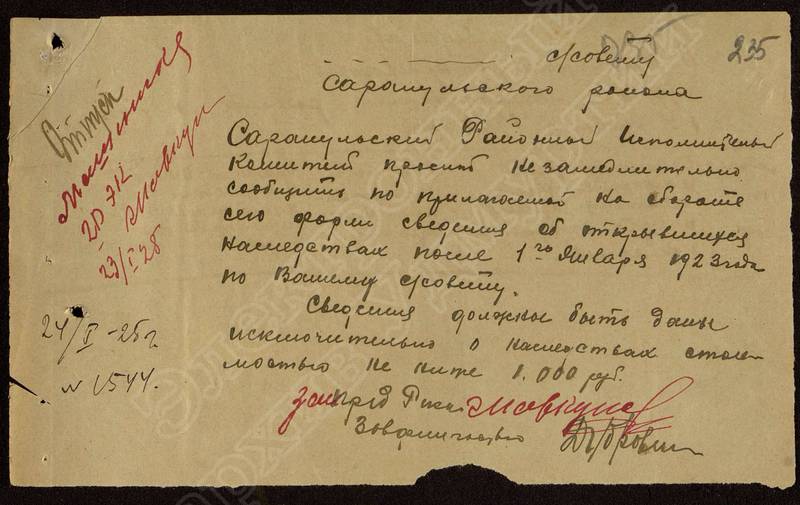 235
с/совету
Сарапульского района
Сарапульский Районный Исполнительный
Комитет просит незамедлительно
сообщить по прилагаемой на обороте
сего форме сведения об открывшихся
наследствах после 1го Января 1923 года
по Вашему с/совету.
Сведения должны быть даны
исключительно о наследствах стои-
мостью не ниже 1.000 руб.
Зам Пред Рика
Отпуск
Машинист
20 экз
23/I 25
24/I-25 г.
№ 1544.